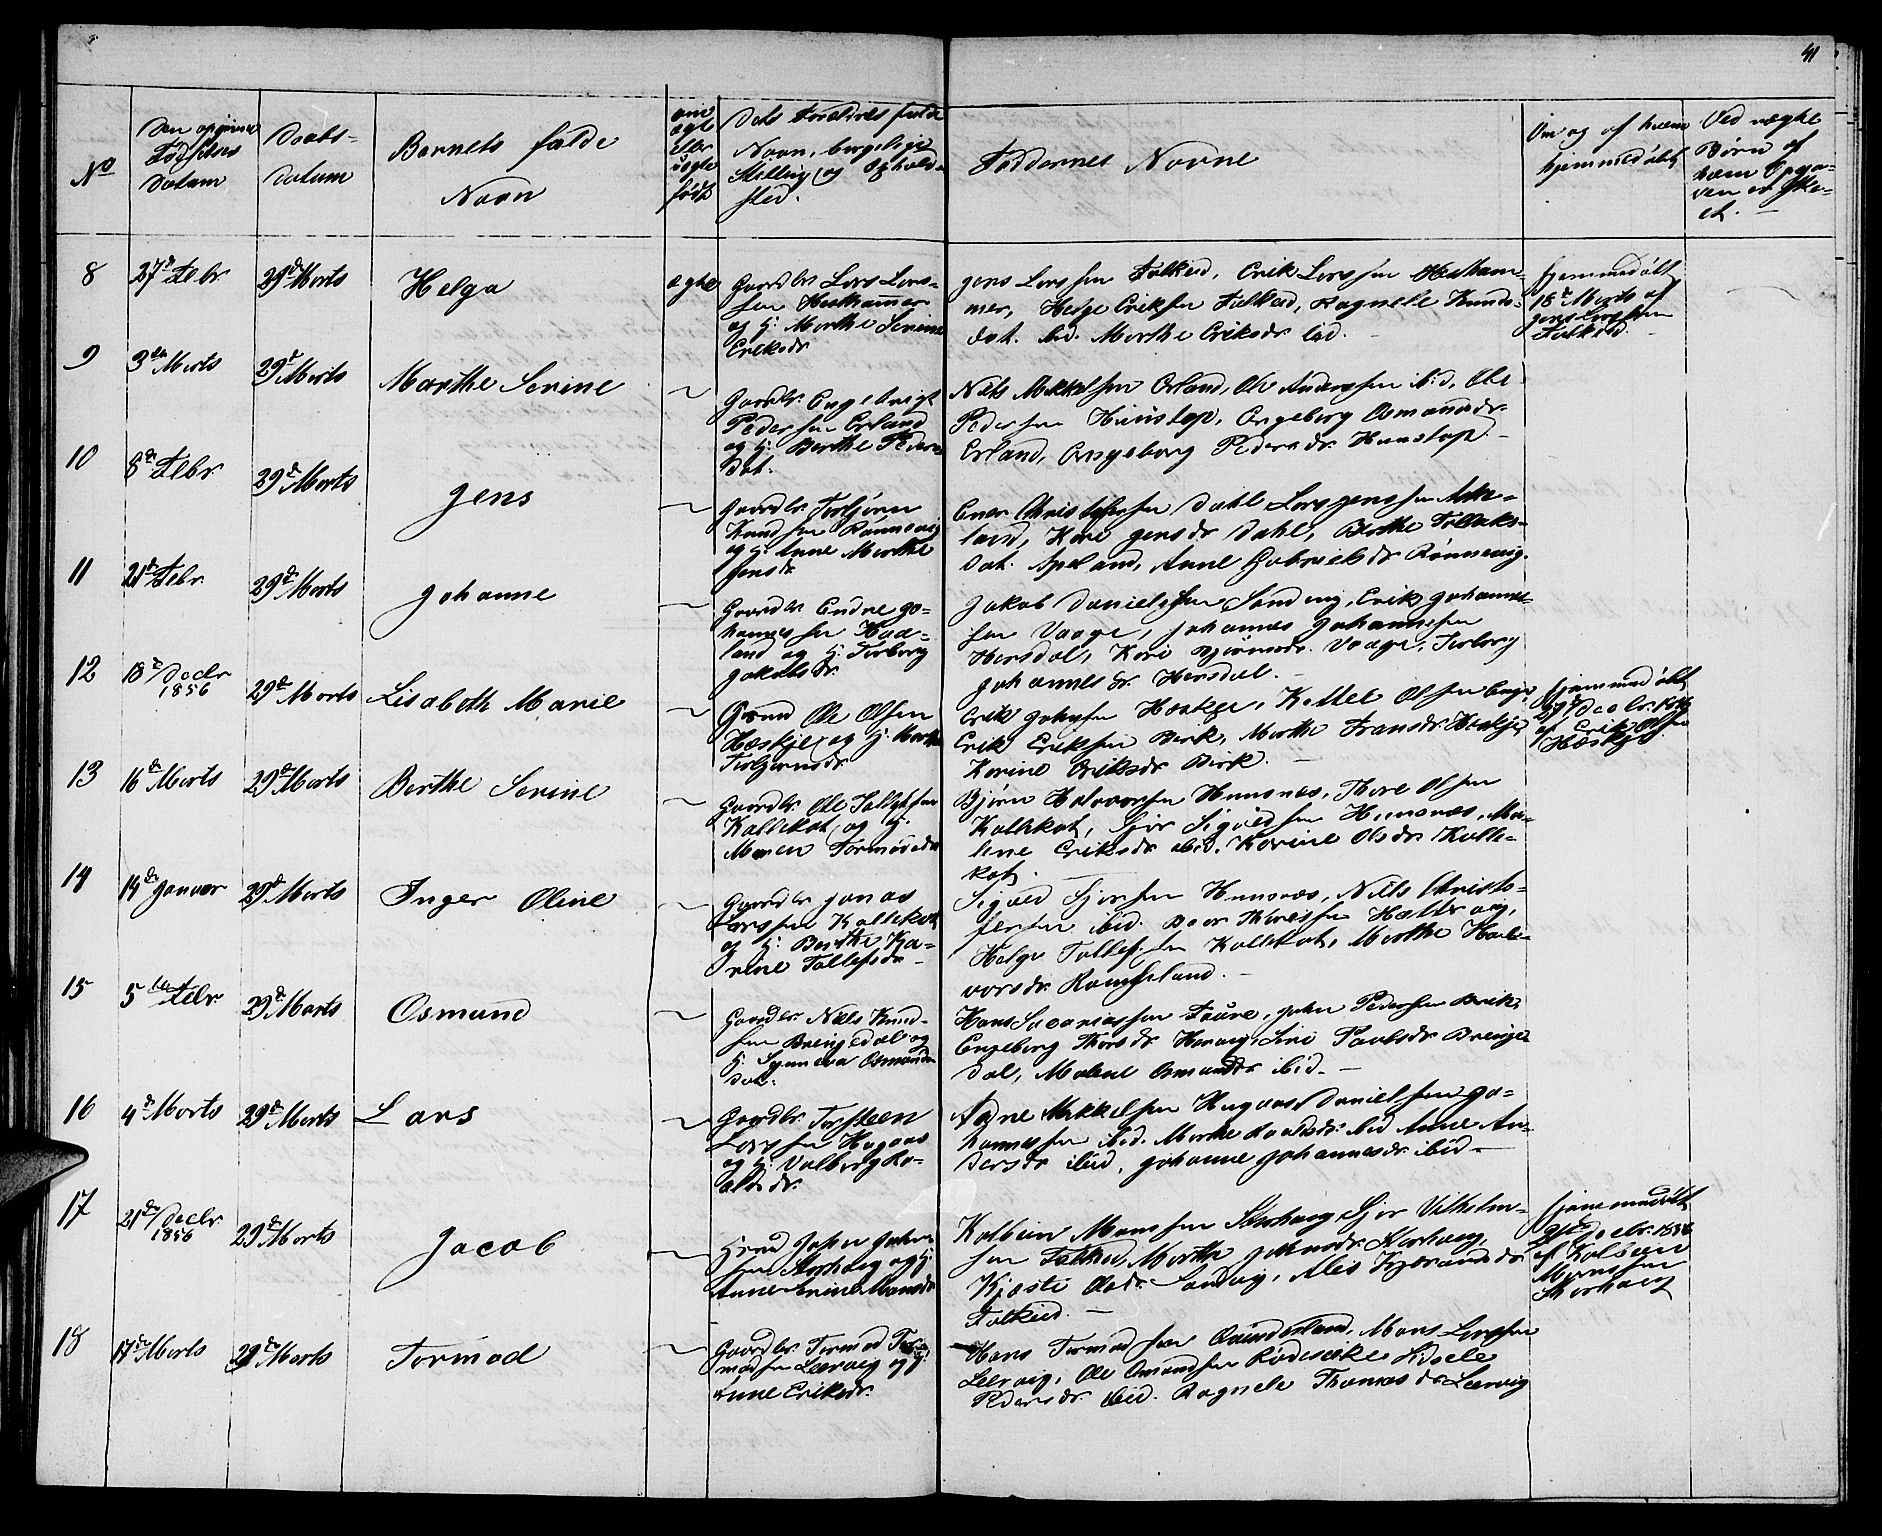 41
No
Den opgivne Fødselses Datum
Daabs-
datum
Barnets fulde
Navn
om ægte eller uægte født
Dets Forældres fulde
Navn, borgelige
Stilling og Opholds-
sted.
Faddernes Navne
Om og af hvem
hjemmedøbt
Ved uægte
Børn af
hvem Opga-
ven er ske-
et. -
8
27de Febr
29de Marts
Helga
ægte
Gaardbr Lars Lars-
sen
og H. Marthe Serine
Eriksdr
Jens Larssen Falkeid, Erik Larssen
mer, Helge Eriksen Falkeid, Ragnele Knuds-
dat. ibid. Marthe Eriksdr ibid. -
Hjemmedøbt
18de Marts af
Jens Larssen
Falkeid. -
9
3die Marts
29de Marts
Marthe Serine
Gaardbr. Engelbrigt
Pedersen Erland
og H. Berthe Peders-
dat.
Niels Mikkelsen Erland, Ole Anderssen ibid, Ole
Pedersen Hunstop, Engeborg Osmundsdr.
Erland, Engeborg Pedersdr. Hunstop. -
10
8de Febr.
29de Marts
Jens
Gaardbr. Torbjørn
Knudsen Rønnevig
og H. Anne Marthe
Jensdr.
Ener Christophersen Dahl Lars Jenssen
land, Kari Jensdr Dahl, Berthe
dat. Apeland, Anne Gabrielsdr Rønnevig.
11
21de Febr.
29de Marts
Johanne
Gaardbr Endre Jo-
hannessen
land og H. Torborg
Jakobsdr.
Jakob Danielssen Sandvig, Erik Johannes-
sen Vaage, Johannes Johannessen
Hersdal, Kari Bjørnsdr. Vaage, Torborg
Johannesdr. Hersdal. -
12
18de Decbr
1856
29de Marts
Lisabeth Marie
Ole Olsen
Hæskje og H. Marthe
Torbjørnsdr
Erik Johnsen Hæskje, Kettel Olsen
Erik Eriksen Birk, Marthe Fransdr. Hæskje
Karine Eriksdr Birk. -
Hjemmedøbt
Decbr. 1856
af Erik Olsen
Hæskje
13
16de Marts
29de Marts
Berthe Serine
Gaardbr. Ole
Kallekot og H.
Maren Tormodsdr
Bjørn Halvorsen Hunsnæs, Thore Olsen
Kallekot, Sjur Sigvedsen Hunsnæs, Ma-
lene Eriksdr ibid. Karine Olsdr. Kalle-
kot. -
14
14de Januar
29de Marts
Inger Oline
Gaardbr Jonas
Larssen Kallekot
og H. Berthe Ka-
rine Tollefsdr -
Sigved Sjursen Hunsnæs, Niels Christo-
fersen ibid.
Helge Tollefsen Kallekot, Marthe Hal-
vorsdr. Ramsland. -
15
5te Febr
29de Marts
Osmund
Gaardbr. Niels Knud-
sen Brengedal og
H. Synneva Osmunds-
dat.
Hans Sacariassen Faure, John Pedersen Birk,
Engeborg Thorsdr. Siri Paulsdr Brenge-
dal, Malene Osmundsdr ibid. -
16
4de Marts
29de Marts
Lars
Gaardbr. Torsteen
Larssen Hagaas
og H. Valborg Ro-
aldsdr.
Adne Mikkelsen Hagaas, Daniel Jo-
hannessen ibid. Marthe Roaldsdr. ibid Anne An-
dersdr ibid, Johanne Johannesdr ibid -
17
21de Decbr
1856
29de Marts
Jacob
John
sen Storhaug og H.
Anne Erine Monsdr
Kolbein Monssen Storhaug, Sjur Vilhelm-
sen Falkeid, Marthe Johnsdr. Storhaug,
Kjesti Olsdr. Sandvig,
Falkeid. -
Hjemmedøbt
Decbr. 1856
af Kolbein
Monssen
Storhaug
18
17de Marts
29de Marts
Tormod
Gaardbr. Tormod Tor-
modsen Leervig og H.
Anne Eriksdr.
Hans Tormodsen Mons Larssen
Leervig, Ole Osmundsen
Pedersdr. ibid. Ragnele Thomasdr. Leervig